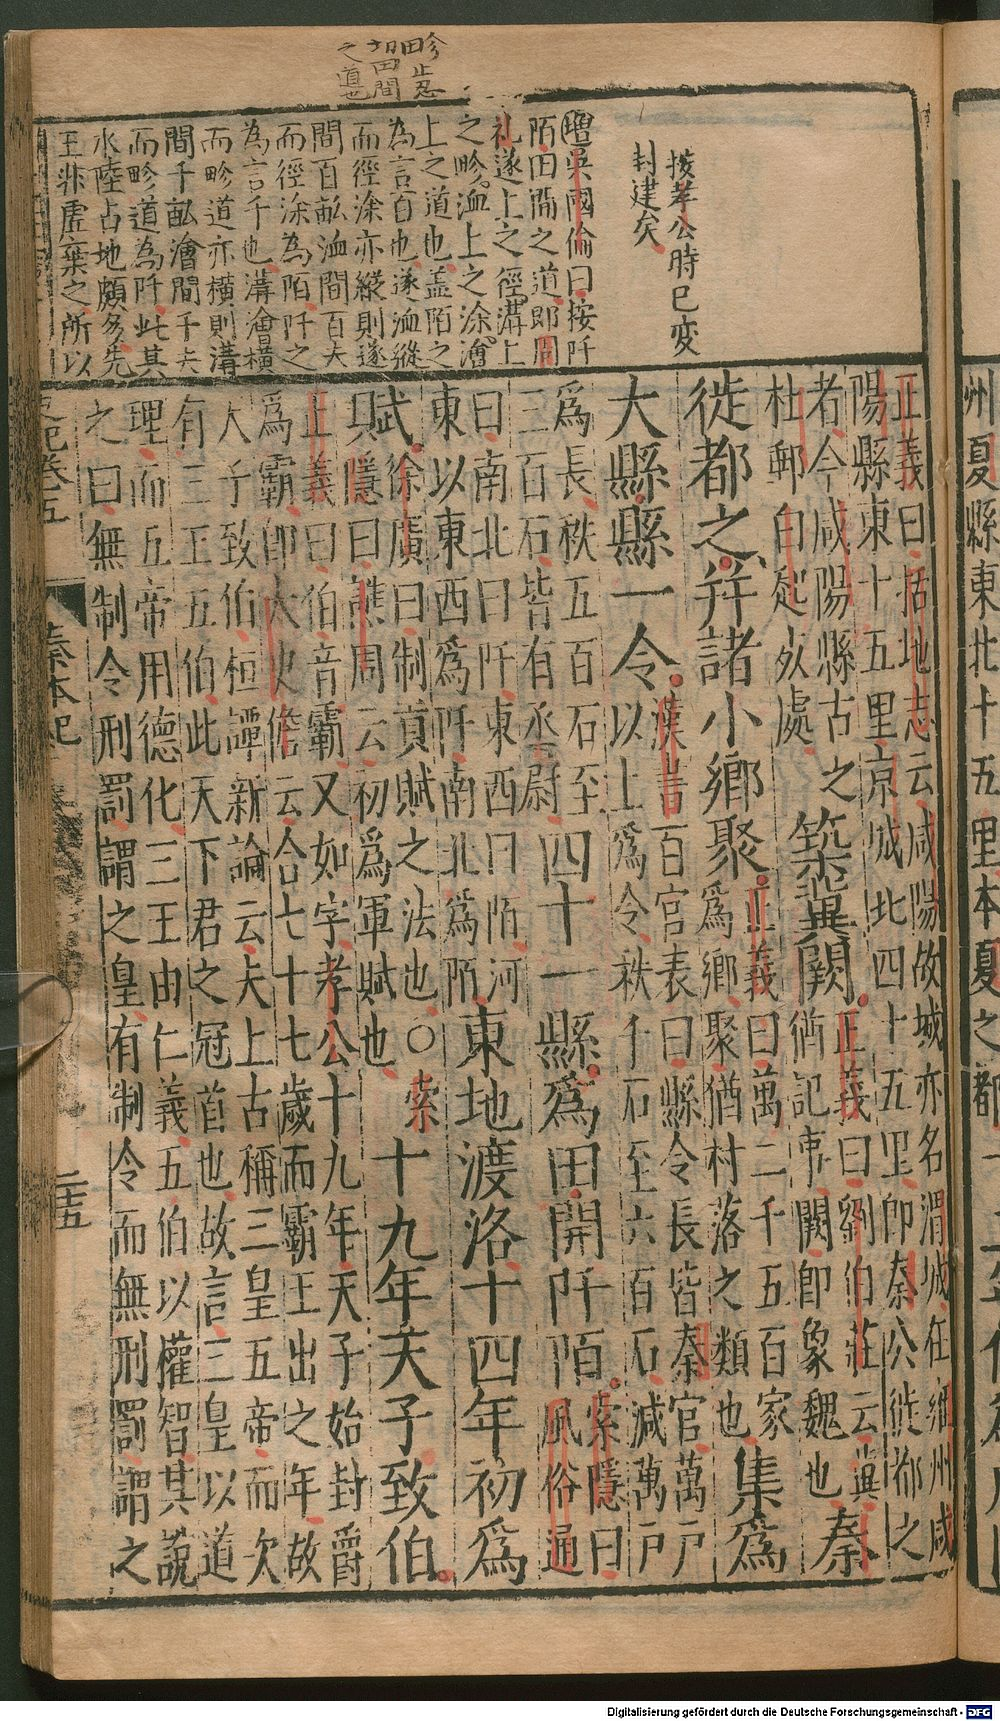 畛止忍
田
切田間
之道也
按孝公時已変
封建矣
增吳國倫曰按阡
陌田間之道即周
礼遂上之徑溝上
之畛洫上之涂澮
上之道也盖陌之
為言百也遂洫縱
而徑涂亦縱則遂
間百畝洫間百夫
而徑涂為陌阡之
為言千也溝澮橫
而畛道亦橫則溝
間千畝澮間千夫
而畛道為阡此其
水陸占地頗多先
王非虛棄之所以
正義曰括地志云咸陽故城亦名渭城在雍州咸
陽縣東十五里京城北四十五里即秦公徙都之
者今咸陽縣古之
杜郵白起死處
築冀闕
正義曰劉伯莊云冀
猶記事闕即象魏也
秦
徙都之并諸小鄉聚
正義曰萬二千五百家
為鄉聚猶村落之類也
集為
大縣縣一令
漢書百官表曰縣令長皆秦官萬戶
以上為令秩千石至六百石減萬戶
為長秩五百石至
三百石皆有丞尉
四十一縣為田開阡陌
索隱曰
風俗通
曰南北曰阡東西曰陌河
東以東西為阡南北為陌
東地渡洛十四年初為
賦
徐廣曰制貢賦之法也〇索
隱曰譙周云初為軍賦也
十九年天子致伯
正義曰伯音霸又如字孝公十九年天子始封爵
為霸即太史儋云合七十七歲而霸王出之年故
天子致伯桓譚新論云夫上古稱三皇五帝而次
有三王五伯此天下君之冠首也故言三皇以道
理而五帝用德化三王由仁義五伯以權智其說
之曰無制令刑罰謂之皇有制令而無刑罰謂之
史記卷五
秦本紀
二十五
州夏縣東北十五里本夏之都
Digitalisierung gefördert durch die Deutsche Forschungsgemeinschaft - DFG